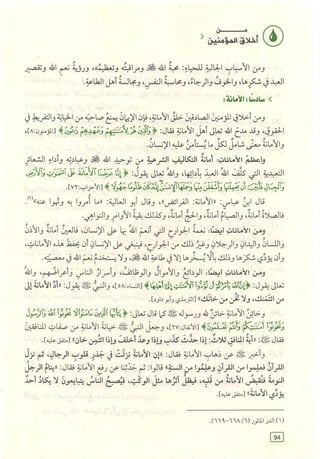 مـــن
أخلاق المؤمنين
ومن الأسباب الجالبة للحياء: محبة الله ﷻ ومراقبته وتعظيمه، ورؤية نعم الله وتقصير
العبد في شكرها، والخوف والرجاء، ومحاسبة النفس، ومجالسة أهل الطاعة.
سادسًا: الأمانة:
ومن أخلاق المؤمنين الصادقين خلق الأمانة، فإن الإيمان يمنع صاحبه من الخيانة والتفريط في
الحقوق، وقد مدح الله تعالى أهل الأمانة فقال: ﴿وَالَّذِينَ هُمْ لِأَمَانَاتِهِمْ وَعَهْدِهِمْ رَاعُونَ﴾ [المؤمنون:٨]،
والأمانة معنى شامل لكل ما يُستأمن عليه الإنسان.
وأعظم الأمانات: أمانة التكاليف الشرعية من توحيد الله ﷻ وعبادته وأداء الشعائر
التعبدية التي كلف الله العبد بأدائها، والله تعالى يقول: ﴿إِنَّا عَرَضْنَا الْأَمَانَةَ عَلَى السَّمَاوَاتِ وَالْأَرْضِ
وَالْجِبَالِ فَأَبَيْنَ أَنْ يَحْمِلْنَهَا وَأَشْفَقْنَ مِنْهَا وَحَمَلَهَا الْإِنْسَانُ إِنَّهُ كَانَ ظَلُومًا جَهُولًا﴾ [الأحزاب:٧٢].
قال ابن عباس: «الأمانة: الفرائض»، وقال أبو العالية: «ما أمروا به ونهوا عنه»(١).
فالصلاة أمانة، والصيام أمانة، والحج أمانة، وكذلك بقية الأوامر والنواهي.
ومن الأمانات أيضًا: نعمة الجوارح التي أنعم الله بها على الإنسان، فالعين أمانة والأذن
واللسان واليدان والرجلان وغير ذلك من الجوارح، فينبغي على الإنسان أن يحفظ هذه الأمانات،
وأن يؤدي شكرها وذلك بألا يُسخرها إلا في طاعة الله ﷻ، ولا يستخدم نعم الله في معصيته.
ومن الأمانات أيضًا: الودائع والأموال والوظائف، وأسرار الناس وأعراضهم، والله
تعالى يقول: ﴿إِنَّ اللَّهَ يَأْمُرُكُمْ أَنْ تُؤَدُّوا الْأَمَانَاتِ إِلَى أَهْلِهَا﴾ [النساء:٥٨]، والنبي ﷺ يقول: «أدِّ الأمانة إلى
من ائتمنك، ولا تخن من خانك» [الترمذي وأبو داود].
وخائن الأمانة خائن لله ورسوله ﷺ كما قال تعالى: ﴿يَا أَيُّهَا الَّذِينَ آمَنُوا لَا تَخُونُوا اللَّهَ وَالرَّسُولَ
وَتَخُونُوا أَمَانَاتِكُمْ وَأَنْتُمْ تَعْلَمُونَ﴾ [الأنفال:٢٧]، وجعل النبي ﷺ خيانة الأمانة من صفات المنافقين
فقال ﷺ: «آية المنافق ثلاث: إذا حدث كذب وإذا وعد أخلف وإذا اؤتمن خان» [متفق عليه].
وأخبر ﷺ عن ذهاب الأمانة فقال: «إن الأمانة نزلت في جذر قلوب الرجال، ثم نزل
القرآن فعلموا من القرآن وعلموا من السنة» قالوا: ثم حدثنا عن رفع الأمانة فقال: «ينام الرجل
النومة فتُقبض الأمانة من قلبه، فيظل أثرها مثل الوكت، فيصبح الناس يتبايعون لا يكاد أحد
يؤدي الأمانة» [متفق عليه].
(١) الدر المنثور (٦/ ٦٦٨-٦٦٩).
94